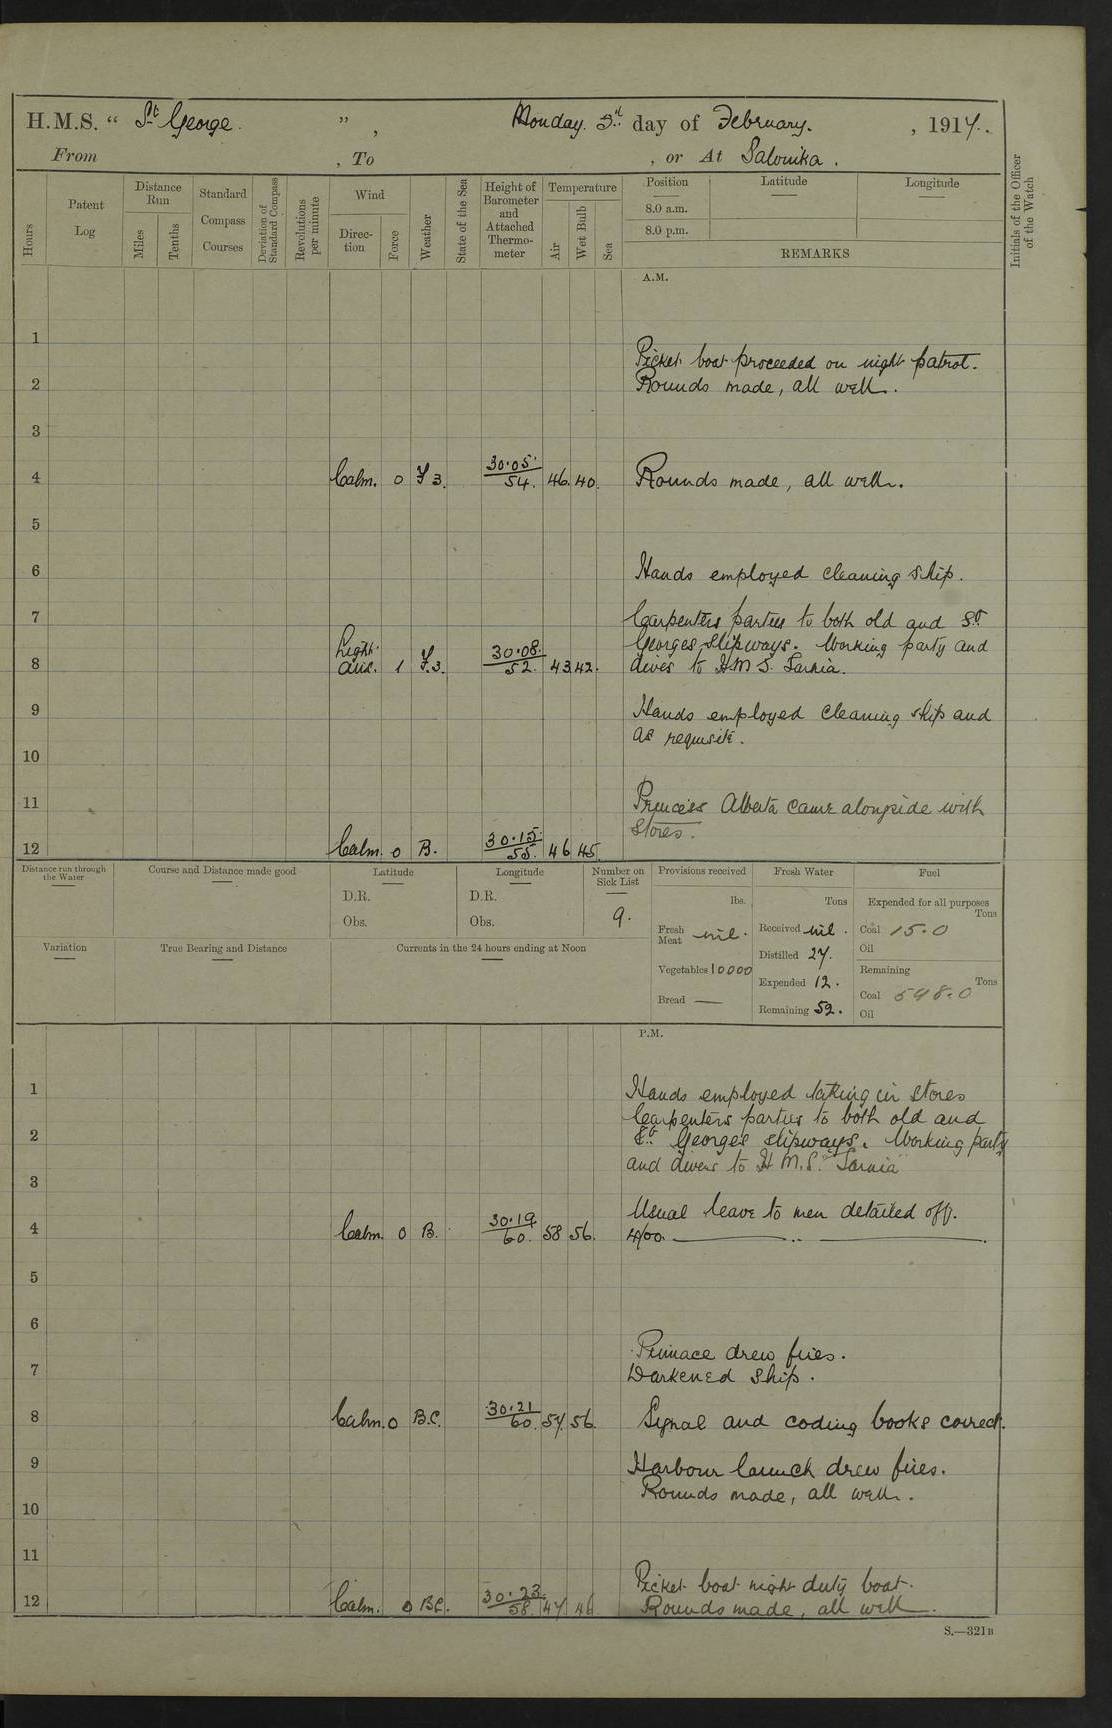 H.M.S. “ St George. ” , Monday. 3rd day of February. , 1917.
From , To , or At Salonika .
Hours
Patent Log
Distance Run
Miles
Tenths
Standard Compass Courses
Deviation of Standard Compass
Revolutions per minute
Wind
Direction
Force
Weather
State of the Sea
Height of Barometer and Attached Thermometer
Temperature
Air
Wet Bulb
Sea
Position
8.0 a.m.
8.0 p.m.
Latitude
Longitude
REMARKS
Initials of the Officer of the Watch
A.M.
1
Picket boat proceeded on night patrol.
2 Rounds made, all well.
3
4 Calm. 0 F 3. 30.05. 54. 46. 40. Rounds made, all well.
5
6 Hands employed cleaning ship.
7 Carpenters parties to both old and St
Georges slipways. Working party and
8 Light airs. 1 F.3. 30.08. 52. 43. 42. divers to H M S. Sarnia.
9 Hands employed cleaning ship and
as requisite.
10
11 Princess Alberta came alongside with
stores.
12 Calm. 0 B. 30.15. 55. 46 45.
Distance run through the Water
Course and Distance made good
Latitude
D.R.
Obs.
Longitude
D.R.
Obs.
Number on Sick List
9.
Provisions received
lbs.
Fresh Meat nil.
Vegetables 10000
Bread —
Fresh Water
Tons
Received nil.
Distilled 27.
Expended 12.
Remaining 52.
Fuel
Expended for all purposes
Tons
Coal 15.0
Oil
Remaining
Tons
Coal 548.0
Oil
Variation
True Bearing and Distance
Currents in the 24 hours ending at Noon
P.M.
1 Hands employed taking in stores
Carpenters parties to both old and
2 St. George's slipways. Working party
and divers to H M.S. "Sarnia"
3
Usual leave to men detailed off.
4 Calm. 0 B. 30.19 60. 58 56. 4/00. — .. —
5
6
Pinnace drew fires.
7 Darkened ship.
8 Calm. 0 B.C. 30.21 60. 57. 56. Signal and coding books correct.
9 Harbour launch drew fires.
Rounds made, all well.
10
11
Picket boat night duty boat.
12 Calm. 0 BC. 30.23. 58. 47 46 Rounds made, all well.
S.—321B